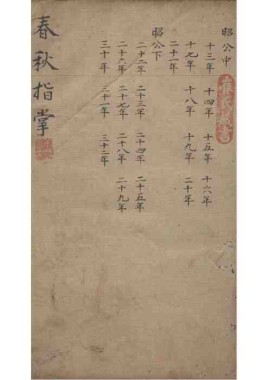 昭公中
十三年 十四年 十五年 十六年
十七年 十八年 十九年 二十年
二十一年
昭公下
二十二年 二十三年 二十四年 二十五年
二十六年 二十七年 二十八年 二十九年
三十年 三十一年 三十二年
春秋指掌